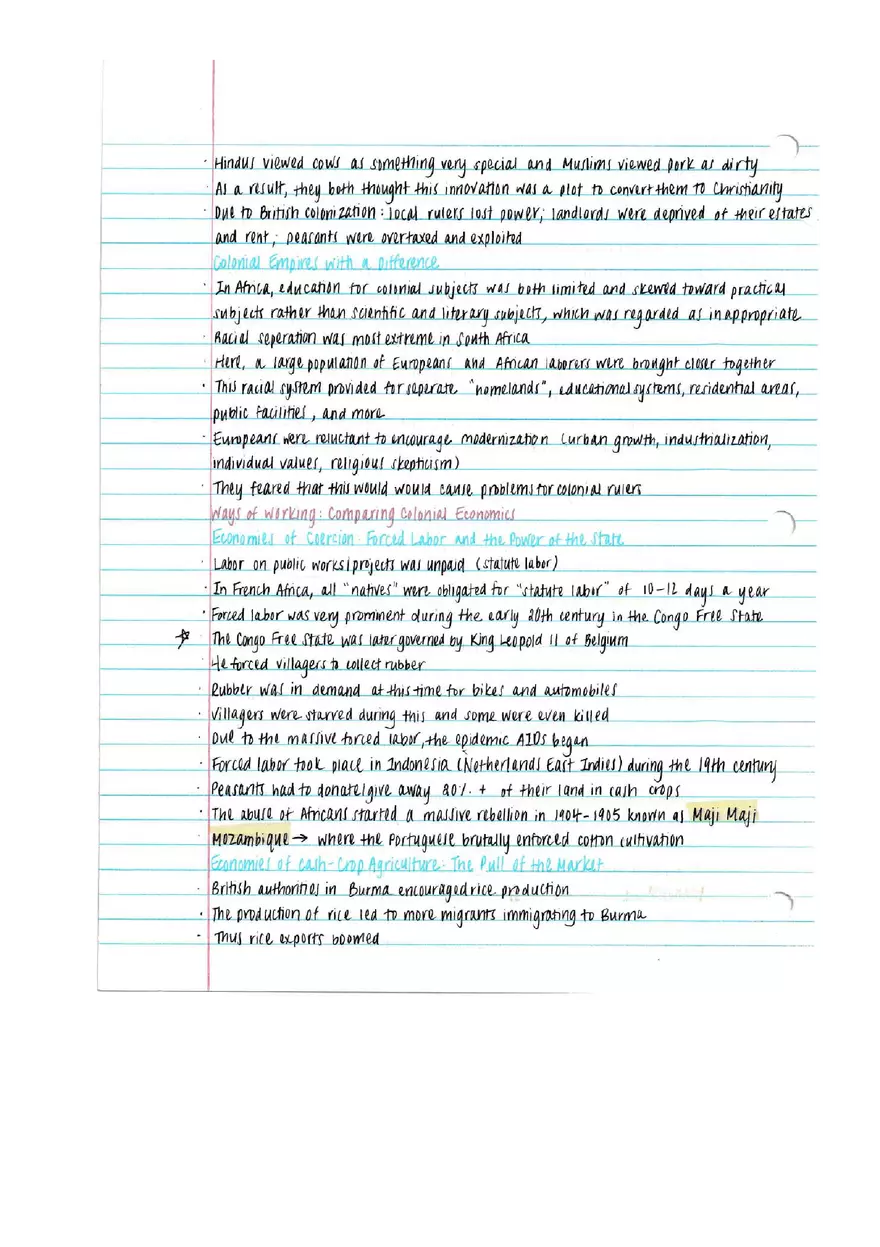 · Hindus viewed cows as something very special and Muslims viewed pork as dirty
As a result, they both thought this innovation was a plot to convert them to Christianity
· Due to British colonization: local rulers lost power; landlords were deprived of their estates
and rent; peasants were overtaxed and exploited
Colonial Empires with a Difference
· In Africa, education for colonial subjects was both limited and skewed toward practical
subjects rather than scientific and literary subjects, which was regarded as inappropriate
· Racial seperation was most extreme in South Africa
· Here, a large population of Europeans and African laborers were brought closer together
· This racial system provided for seperate "homelands", educational systems, residential areas,
public facilities, and more
· Europeans were reluctant to encourage modernization (urban growth, industrialization,
individual values, religious skepticism)
· They feared that this would would cause problems for colonial rulers
Ways of Working: Comparing Colonial Economies
Economies of Coercion: Forced Labor and the Power of the State
· Labor on public works/projects was unpaid (statute labor)
· In French Africa, all "natives" were obligated for "statute labor" of 10-12 days a year
· Forced labor was very prominent during the early 20th century in the Congo Free State
☆ · The Congo Free State was later governed by King Leopold II of Belgium
· He forced villagers to collect rubber
· Rubber was in demand at this time for bikes and automobiles
· Villagers were starved during this and some were even killed
· Due to the massive forced labor, the epidemic AIDs began
· Forced labor took place in Indonesia (Netherlands East Indies) during the 19th century
· Peasants had to donate/give away 20% + of their land in cash crops
· The abuse of Africans started a massive rebellion in 1904-1905 known as Maji Maji
· Mozambique → where the Portuguese brutally enforced cotton cultivation
Economies of Cash-Crop Agriculture: The Pull of the Market
· British authorities in Burma encouraged rice production
· The production of rice led to more migrants immigrating to Burma
· Thus rice exports boomed